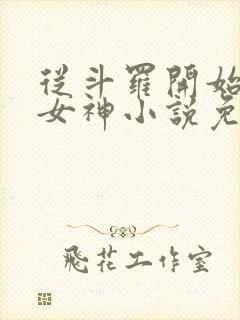 從斗羅開始
女神小說免
飛花工作室